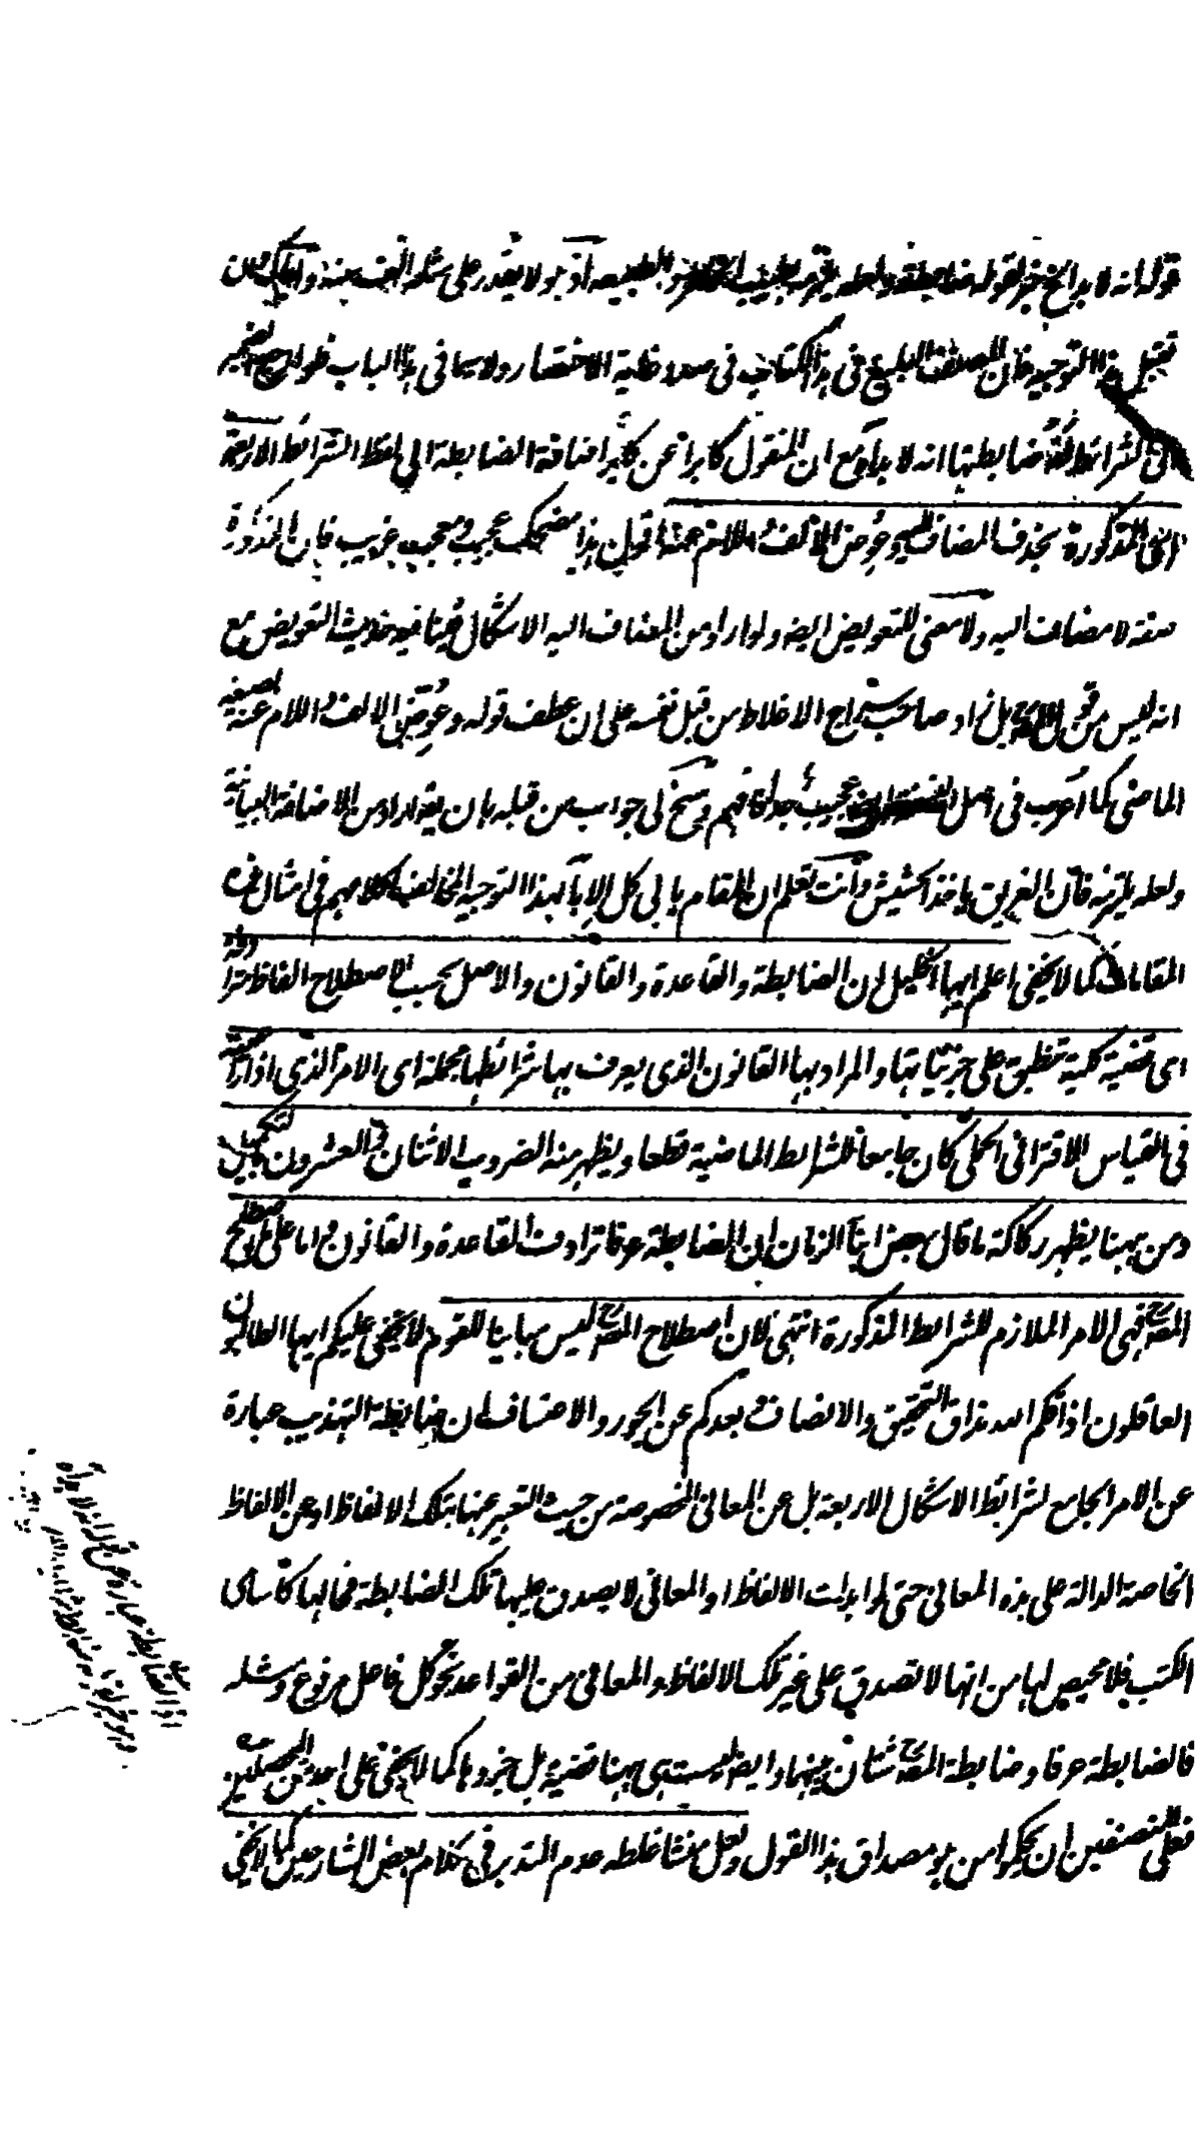 قوله انه لا بد الخ خبر لقوله ضابطة ولعله الطبيعه اذ هو لا يقدر على مثله واياك من
تقبل هذا التوجيه فان المصنف البليغ في هذا الكتاب في صدد غاية الاختصار ولا سيما في هذا الباب فلو
الشرائط ضابطتها انه لا بد آه مع ان المنقول كابرا عن كابر اضافة الضابطة الى لفظ الشرائط الاربعة
المذكورة بحذف المضاف اليه وعوض الالف واللام عنه اقول ان هذا مضحك عجيب ومعجب غريب فان المذكورة
صفة لا مضاف اليه ولا معنى للتعويض ايضا ولو اراد من المضاف اليه الاشكال فينافيه حديث التعويض مع
انه ليس من بل زاد صاحب الاغلاط من قبل نفسه على ان عطف قوله وعوض الالف واللام عنه بصيغة
الماضي كما اعرب في اصل عجيب جدا فافهم وسنح لي جواب من قبله بان يقوله اراد من الاضافة البيانية
ولعله يلتزمه فان الغريق ياخذ الحشيش وانت تعلم ان المقام يابى كل الاباء بهذا التوجيه المخالف لكلامهم في امثال هذه
المقامات كما لا يخفى اعلم ايها الخليل ان الضابطة والقاعدة والقانون والاصل بحسب الاصطلاح الفاظ مترادفة
اى قضية كلية تنطبق على جزئياتها والمراد بها القانون الذى يعرف بها شرائطها مجملة اى الامر الذي اذا
في القياس الاقتراني الحملي كان جامعا للشرائط الماضية قطعا ويظهر منه الضروب الاثنان والعشرون
ومن ههنا يظهر ركاكة ما قال بعض ابناء الزمان ان الضابطة عرفا ترادف القاعدة والقانون واما على اصطلاح
المصنف فهي الامر الملازم للشرائط المذكورة انتهى فان اصطلاح المصنف ليس مباينا للقوم لا يخفى عليكم ايها الطالبون
العاقلون اذاقكم الله مذاق التحقيق والانصاف وبعدكم عن الجور والاعتساف ان ضابطة التهذيب عبارة
عن الامر الجامع لشرائط الاشكال الاربعة بل عن المعاني المخصوصة من حيث التعبير عنها بتلك الالفاظ او عن الالفاظ
الخاصة الدالة على هذه المعاني حتى لو ابدلت الالفاظ او المعاني لا يصدق عليها تلك الضابطة فحالها كاسامى
الكتب فلا محيص لها من انها لا تصدق على غير تلك الالفاظ والمعاني من القواعد نحو كل فاعل مرفوع ومثله
فالضابطة عرفا وضابطة المصنف شتان بينهما وايضا ليست هى ههنا قضية بل جزوها كما لا يخفى على احد من المحصلين
فعلى المنصفين ان يحكموا من هو مصداق هذا القول ولعل منشا غلطه عدم التدبر في كلام بعض الشارحين كما لا يخفى